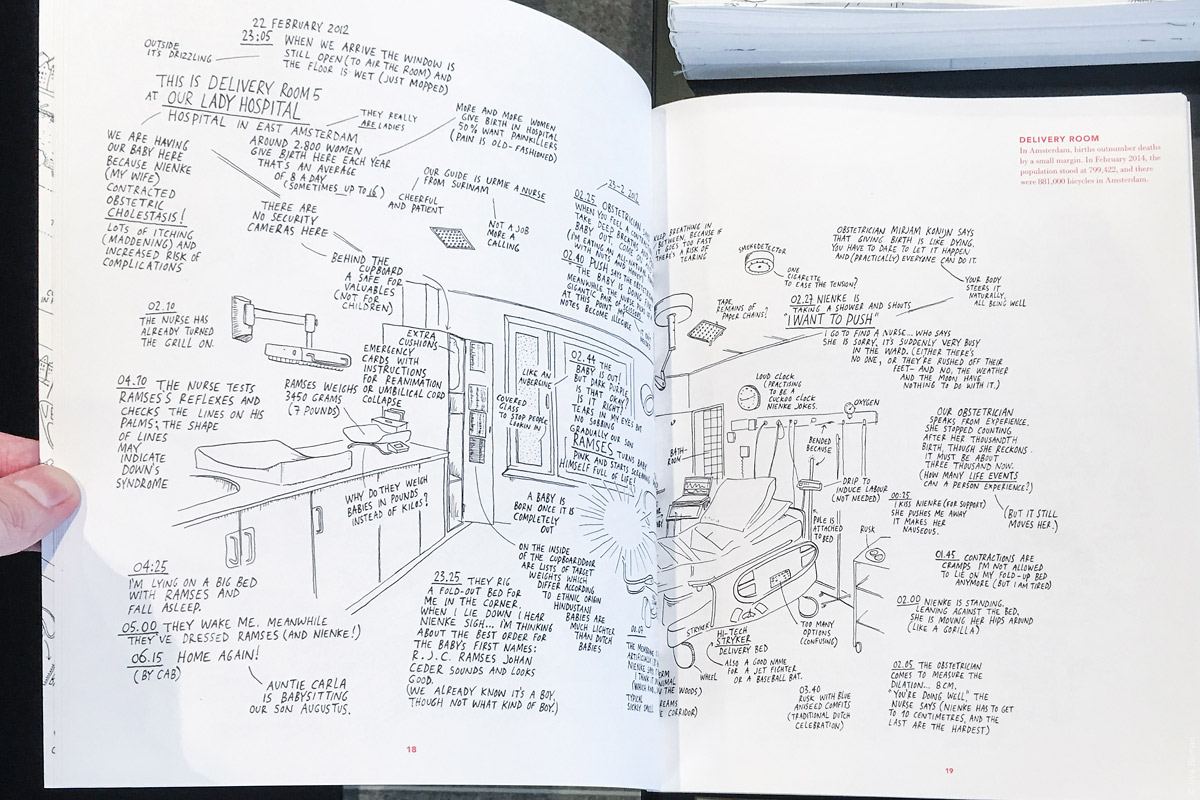 22 FEBRUARY 2012
23:05 WHEN WE ARRIVE THE WINDOW IS
STILL OPEN (TO AIR THE ROOM) AND
THE FLOOR IS WET (JUST MOPPED)
OUTSIDE
IT'S DRIZZLING
THIS IS DELIVERY ROOM 5
AT OUR LADY HOSPITAL
HOSPITAL IN EAST AMSTERDAM
THEY REALLY
ARE LADIES
AROUND 2.800 WOMEN
GIVE BIRTH HERE EACH YEAR
THAT'S AN AVERAGE
OF 8 A DAY
(SOMETIMES UP TO 16)
MORE AND MORE WOMEN
GIVE BIRTH IN HOSPITAL
50% WANT PAINKILLERS
(PAIN IS OLD-FASHIONED)
WE ARE HAVING
OUR BABY HERE
BECAUSE NIENKE
(MY WIFE)
CONTRACTED
OBSTETRIC
CHOLESTASIS!
LOTS OF ITCHING
(MADDENING) AND
INCREASED RISK OF
COMPLICATIONS
THERE ARE
NO SECURITY
CAMERAS HERE
CHEERFUL
AND PATIENT
OUR GUIDE IS URMIE A NURSE
FROM SURINAM
NOT A JOB
MORE A
CALLING
BEHIND THE
CUPBOARD
A SAFE FOR
VALUABLES
(NOT FOR
CHILDREN)
02.10
THE NURSE HAS
ALREADY TURNED
THE GRILL ON.
EXTRA
CUSHIONS
EMERGENCY
CARDS WITH
INSTRUCTIONS
FOR REANIMATION
OR UMBILICAL CORD
COLLAPSE
RAMSES WEIGHS
3450 GRAMS
(7 POUNDS)
04.10 THE NURSE TESTS
RAMSES'S REFLEXES AND
CHECKS THE LINES ON HIS
PALMS; THE SHAPE
OF LINES
MAY
INDICATE
DOWN'S
SYNDROME
WHY DO THEY WEIGH
BABIES IN POUNDS
INSTEAD OF KILOS?
23-2-2012
02.25 OBSTETRICIAN
WHEN YOU FEEL A
TAKE DEEP BREATH
BABY OUT. COME ON
(I'M EATING AN ALL-NATURAL
WITH NUTS AND
02.40 PUSH SAYS THE
THE BABY IS DOING
MEANWHILE THE NURSE
GIGANTIC PAIR OF
AT THIS POINT
NOTES BECOME ILLEGIBLE
LIKE AN
AUBERGINE
COVERED
GLASS
TO STOP PEOPLE
LOOKIN IN
02.44 THE
BABY IS OUT!
BUT DARK PURPLE
IS THAT OKAY?
IS IT RIGHT?
TEARS IN MY EYES BUT
NO SOBBING
GRADUALLY OUR SON
RAMSES TURNS BABY
PINK AND STARTS SCREAMING
HIMSELF FULL OF LIFE!
A BABY IS
BORN ONCE IT IS
COMPLETELY
OUT
ON THE INSIDE
OF THE CUPBOARDDOOR
ARE LISTS OF TARGET
WEIGHTS WHICH
DIFFER ACCORDING
TO ETHNIC ORIGIN
HINDUSTANI
BABIES ARE
MUCH LIGHTER
THAN DUTCH
BABIES
04:25
I'M LYING ON A BIG BED
WITH RAMSES AND
FALL ASLEEP.
05.00 THEY WAKE ME. MEANWHILE
THEY'VE DRESSED RAMSES (AND NIENKE!)
06.15 HOME AGAIN!
(BY CAB)
AUNTIE CARLA
IS BABYSITTING
OUR SON AUGUSTUS.
23.25 THEY RIG
A FOLD-OUT BED FOR
ME IN THE CORNER.
WHEN I LIE DOWN I HEAR
NIENKE SIGH... I'M THINKING
ABOUT THE BEST ORDER FOR
THE BABY'S FIRST NAMES:
R.J.C. RAMSES JOHAN
CEDER SOUNDS AND LOOKS
GOOD.
(WE ALREADY KNOW IT'S A BOY,
THOUGH NOT WHAT KIND OF BOY.)
18
DELIVERY ROOM
In Amsterdam, births outnumber deaths
by a small margin. In February 2014, the
population stood at 799,422, and there
were 881,000 bicycles in Amsterdam.
KEEP BREATHING IN
BETWEEN, BECAUSE IF
IT GOES TOO FAST
THERE'S A RISK OF
TEARING
SMOKEDETECTOR
ONE
CIGARETTE
TO EASE THE TENSION?
OBSTETRICIAN MIRJAM KONIJN SAYS
THAT GIVING BIRTH IS LIKE DYING.
YOU HAVE TO DARE TO LET IT HAPPEN
AND (PRACTICALLY) EVERYONE CAN DO IT.
YOUR BODY
STEERS IT
NATURALLY,
ALL BEING WELL
TAPE,
REMAINS OF
PAPER CHAINS?
02.27 NIENKE IS
TAKING A SHOWER AND SHOUTS
"I WANT TO PUSH"
I GO TO FIND A NURSE... WHO SAYS
SHE IS SORRY, IT'S SUDDENLY VERY BUSY
IN THE WARD. (EITHER THERE'S
NO ONE, OR THEY'RE RUSHED OFF THEIR
FEET- AND NO, THE WEATHER
AND THE MOON HAVE
NOTHING TO DO WITH IT.)
LOUD CLOCK
(PRACTISING
TO BE A
CUCKOO CLOCK
NIENKE JOKES.
OXYGEN
BENDED
BECAUSE
BATH-
ROOM
DRIP TO
INDUCE LABOUR
(NOT NEEDED)
POLE IS
ATTACHED
TO BED
RUSK
OUR OBSTETRICIAN
SPEAKS FROM EXPERIENCE.
SHE STOPPED COUNTING
AFTER HER THOUSANDTH
BIRTH, THOUGH SHE RECKONS
IT MUST BE ABOUT
THREE THOUSAND NOW.
(HOW MANY LIFE EVENTS
CAN A PERSON EXPERIENCE?)
00:25
I KISS NIENKE (FOR SUPPORT)
SHE PUSHES ME AWAY
IT MAKES HER
NAUSEOUS.
(BUT IT STILL
MOVES HER.)
01.45 CONTRACTIONS ARE
CRAMPS I'M NOT ALLOWED
TO LIE ON MY FOLD-UP BED
ANYMORE (BUT I AM TIRED)
02.00 NIENKE IS STANDING.
LEANING AGAINST THE BED,
SHE IS MOVING HER HIPS AROUND
(LIKE A GORILLA)
TOO MANY
OPTIONS
(CONFUSING)
STRYKER
HI-TECH
STRYKER
DELIVERY BED
WHEEL
ALSO A GOOD NAME
FOR A JET FIGHTER
OR A BASEBALL BAT.
03.40
RUSK WITH BLUE
ANISEED COMFITS
(TRADITIONAL DUTCH
CELEBRATION)
02.05 THE OBSTETRICIAN
COMES TO MEASURE THE
DILATION... 8 CM.
"YOU'RE DOING WELL" THE
NURSE SAYS (NIENKE HAS TO GET
TO 10 CENTIMETRES, AND THE
LAST ARE THE HARDEST)
19